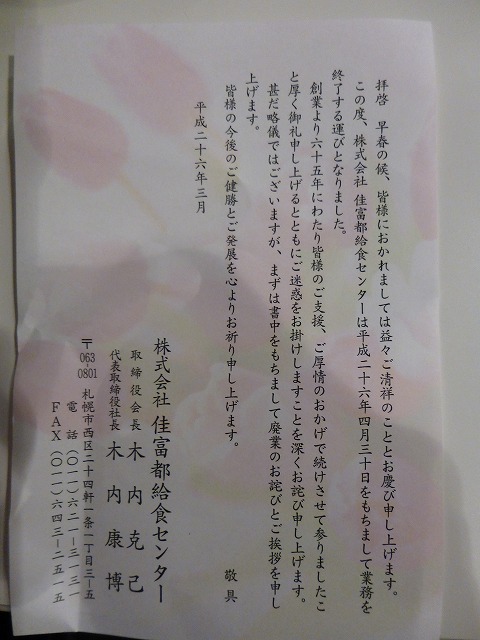 拝啓　早春の候、皆様におかれましては益々ご清祥のこととお慶び申し上げます。
この度、株式会社 佳富都給食センターは平成二十六年四月三十日をもちまして業務を
終了する運びとなりました。
創業より六十五年にわたり皆様のご支援、ご厚情のおかげで続けさせて参りましたこ
と厚く御礼申し上げるとともにご迷惑をお掛けしますことを深くお詫び申し上げます。
甚だ略儀ではございますが、まずは書中をもちまして廃業のお詫びとご挨拶を申し
上げます。
皆様の今後のご健勝とご発展を心よりお祈り申し上げます。
敬具
平成二十六年三月
株式会社 佳富都給食センター
取締役会長 木内克己
代表取締役社長 木内康博
〒063-0801 札幌市西区二十四軒一条一丁目三-五
電話（〇一一）六二一-三一三一
ＦＡＸ（〇一一）六四三-二五一五